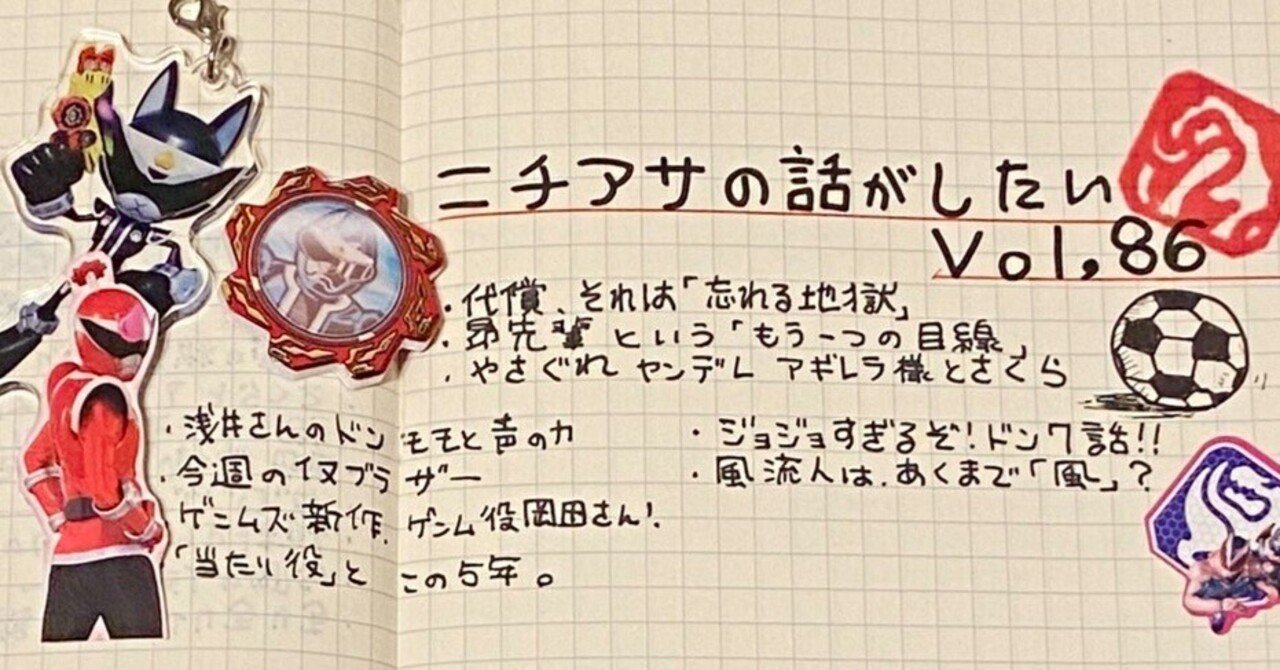 ニチアサの話がしたい
Vol,86
・代償、それは「忘れる地獄」
・昴先輩という「もう一つの目線」
・やさぐれヤンデレ アギレラ様とさくら
・浅井さんのドンモモと声の力
・今週のイヌブラザー
ゲニムズ新作、ゲンム役岡田さん!
「当たり役」とこの5年。
・ジョジョすぎるぞ!ドン7話!!
・風流人は、あくまで「風」?